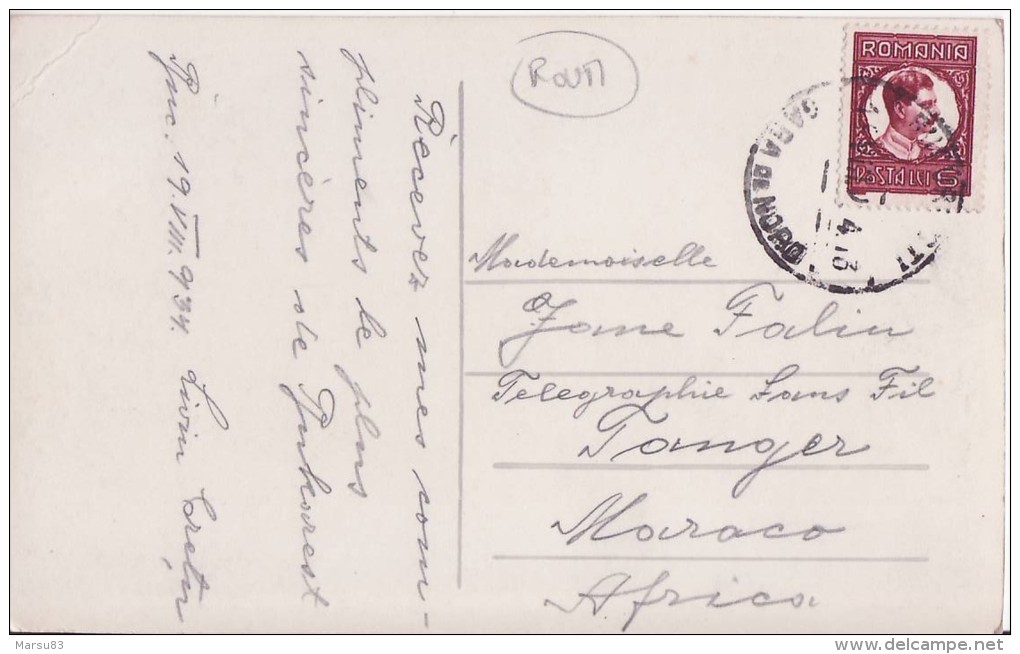 Rècevez mes com-
pliments le plus
sincères de Bukarest
Buc. 19.VIII.934. Liviu Crețu
ROMANIA
POSTA LEI 6
GARA DE NORD
Mademoiselle
Jane Falin
Telegraphie Sans Fil
Tanger
Maraco
Africa
Marsu83
www.delcampe.net